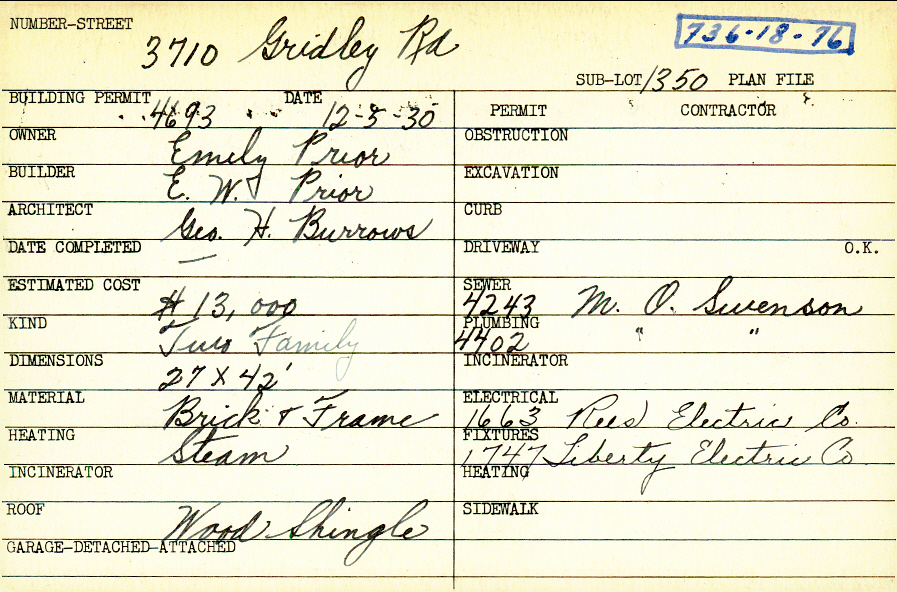 NUMBER-STREET
3710 Gridley Rd
736-18-76
SUB-LOT 1350 PLAN FILE
BUILDING PERMIT 4693 DATE 12-5-30
OWNER Emily Prior
BUILDER E. W. Prior
ARCHITECT Geo. H. Burrows
DATE COMPLETED —
ESTIMATED COST $13,000
KIND Two Family
DIMENSIONS 27 X 42'
MATERIAL Brick & Frame
HEATING Steam
INCINERATOR
ROOF Wood Shingle
GARAGE-DETACHED-ATTACHED
PERMIT CONTRACTOR
OBSTRUCTION
EXCAVATION
CURB
DRIVEWAY O.K.
SEWER 4243 M. O. Swenson
PLUMBING 4402 " "
INCINERATOR
ELECTRICAL 1663 Rees Electric Co.
FIXTURES 1747 Liberty Electric Co
HEATING
SIDEWALK